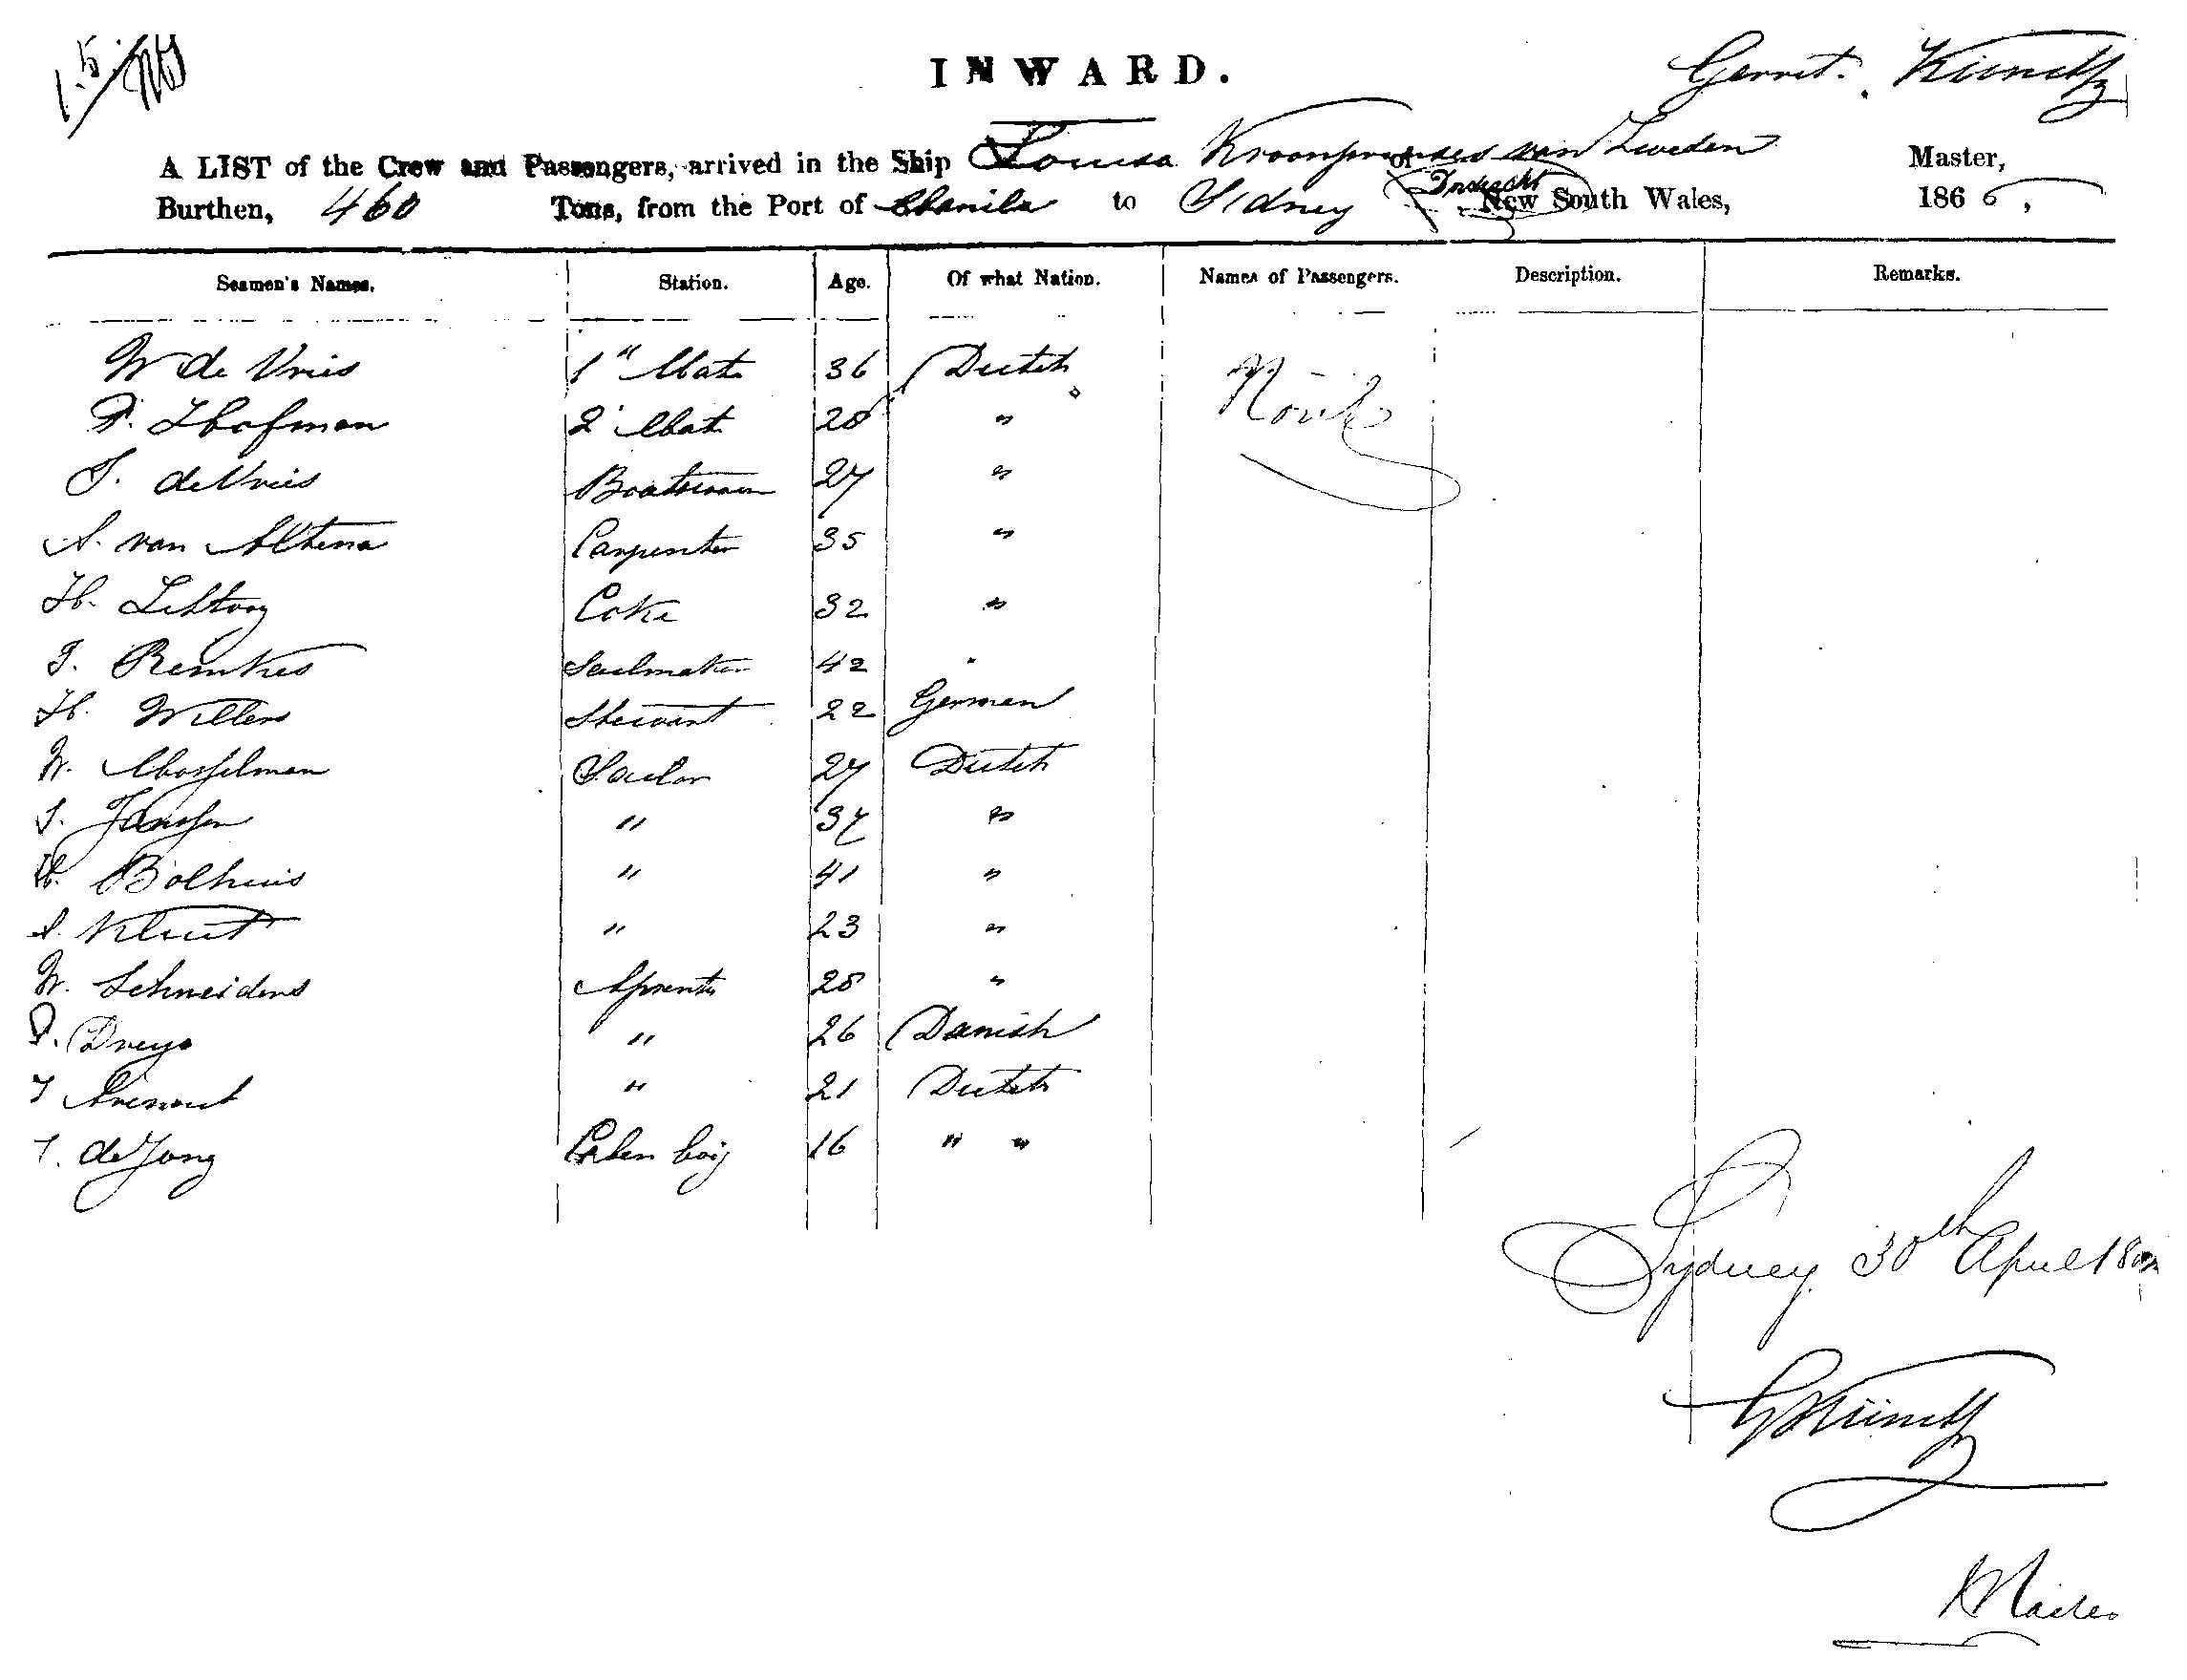 INWARD.
Gerrit.
A LIST of the Crew and Passengers, arrived in the Ship Louisa Kroonprinses van Zweden Master,
of Dordrecht
Burthen, 460 Tons, from the Port of Manila to Sidney New South Wales, 186
Seamen's Names. Station. Age. Of what Nation. Names of Passengers. Description. Remarks.
W de Vries 1" Mate 36 Dutch
P. Hofman 2 Mate 28 "
J. de Vries Boatsman 27 "
A. van Althena Carpenter 35 "
H. Coke 32 "
J. Remkes Seulmaker 42 "
H. Willers Stewart 22 German
W. Mosselman Saelor 27 Dutch
J. Janssen " 37 "
H. Bolhuis " 41 "
A. Kluit " 23 "
W. Schneiders Aprents 28 "
P. Dreyo " 26 Danish
J " 21 Dutch
J. de Jong Caben boij 16 " "
Sydney 30th April 18